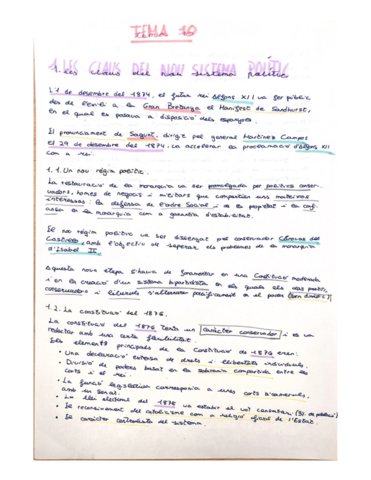 TEMA 10
1. LES CLAUS DEL NOU SISTEMA POLÍTIC
L'1 de desembre del 1874, el futur rei Alfons XII va fer públic
des de l'exili a la Gran Bretanya el Manifest de Sandhurst,
en el qual es posava a disposició dels espanyols.
El pronunciament de Sagunt, dirigit pel general Martínez Campos
el 29 de desembre del 1874, va accelerar la proclamació d'Alfons XII
com a rei.
1.1. Un nou règim polític.
La restauració de la monarquia va ser promulgada per polítics conser-
vadors, homes de negocis i militars que compartien uns mateixos
interessos: la defensa de l'ordre Social i de la propietat i la conf-
iança en la monarquia com a garantia d'estabilitat.
El nou règim polític va ser dissenyat pel conservador Cánovas del
Castillo, amb l'objectiu de superar els problemes de la monarquia
d'Isabel II.
Aquesta nova etapa s'havia de fonamentar en una Constitució moderada
i en la creació d'un sistema bipartidista en els quals els dos partits,
conservadors i liberals s'alternarien pacíficament en el poder
1.2. La constitució del 1876.
La constitució del 1876 tenia un caràcter conservador i es va
redactar amb una certa flexibilitat.
Els elements principals de la Constitució de 1876 eren:
• Una declaració extensa de drets i llibertats individuals.
• Divisió de poders basat en la sobirania compartida entre les
corts i el rei.
• La funció legislativa corresponia a unes corts bicamerals,
amb un Senat.
• La llei electoral del 1878 va establir el vot censatari
• El reconeixement del catolicisme com a religió oficial de l'Estat.
• El caràcter centralista del sistema.